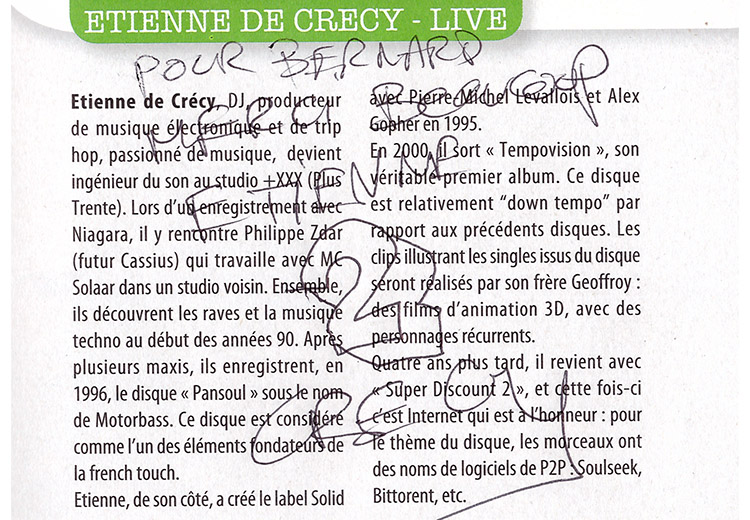 ETIENNE DE CRECY - LIVE
POUR BERNARD
MERCI BEAUCOUP
ETIENNE
2
CRECY
Etienne de Crécy, DJ, producteur
de musique électronique et de trip
hop, passionné de musique, devient
ingénieur du son au studio +XXX (Plus
Trente). Lors d'un enregistrement avec
Niagara, il y rencontre Philippe Zdar
(futur Cassius) qui travaille avec MC
Solaar dans un studio voisin. Ensemble,
ils découvrent les raves et la musique
techno au début des années 90. Après
plusieurs maxis, ils enregistrent, en
1996, le disque « Pansoul » sous le nom
de Motorbass. Ce disque est considéré
comme l'un des éléments fondateurs de
la french touch.
Etienne, de son côté, a créé le label Solid
avec Pierre-Michel Levallois et Alex
Gopher en 1995.
En 2000, il sort « Tempovision », son
véritable premier album. Ce disque
est relativement "down tempo" par
rapport aux précédents disques. Les
clips illustrant les singles issus du disque
seront réalisés par son frère Geoffroy :
des films d'animation 3D, avec des
personnages récurrents.
Quatre ans plus tard, il revient avec
« Super Discount 2 », et cette fois-ci
c'est Internet qui est à l'honneur : pour
le thème du disque, les morceaux ont
des noms de logiciels de P2P : Soulseek,
Bittorent, etc.